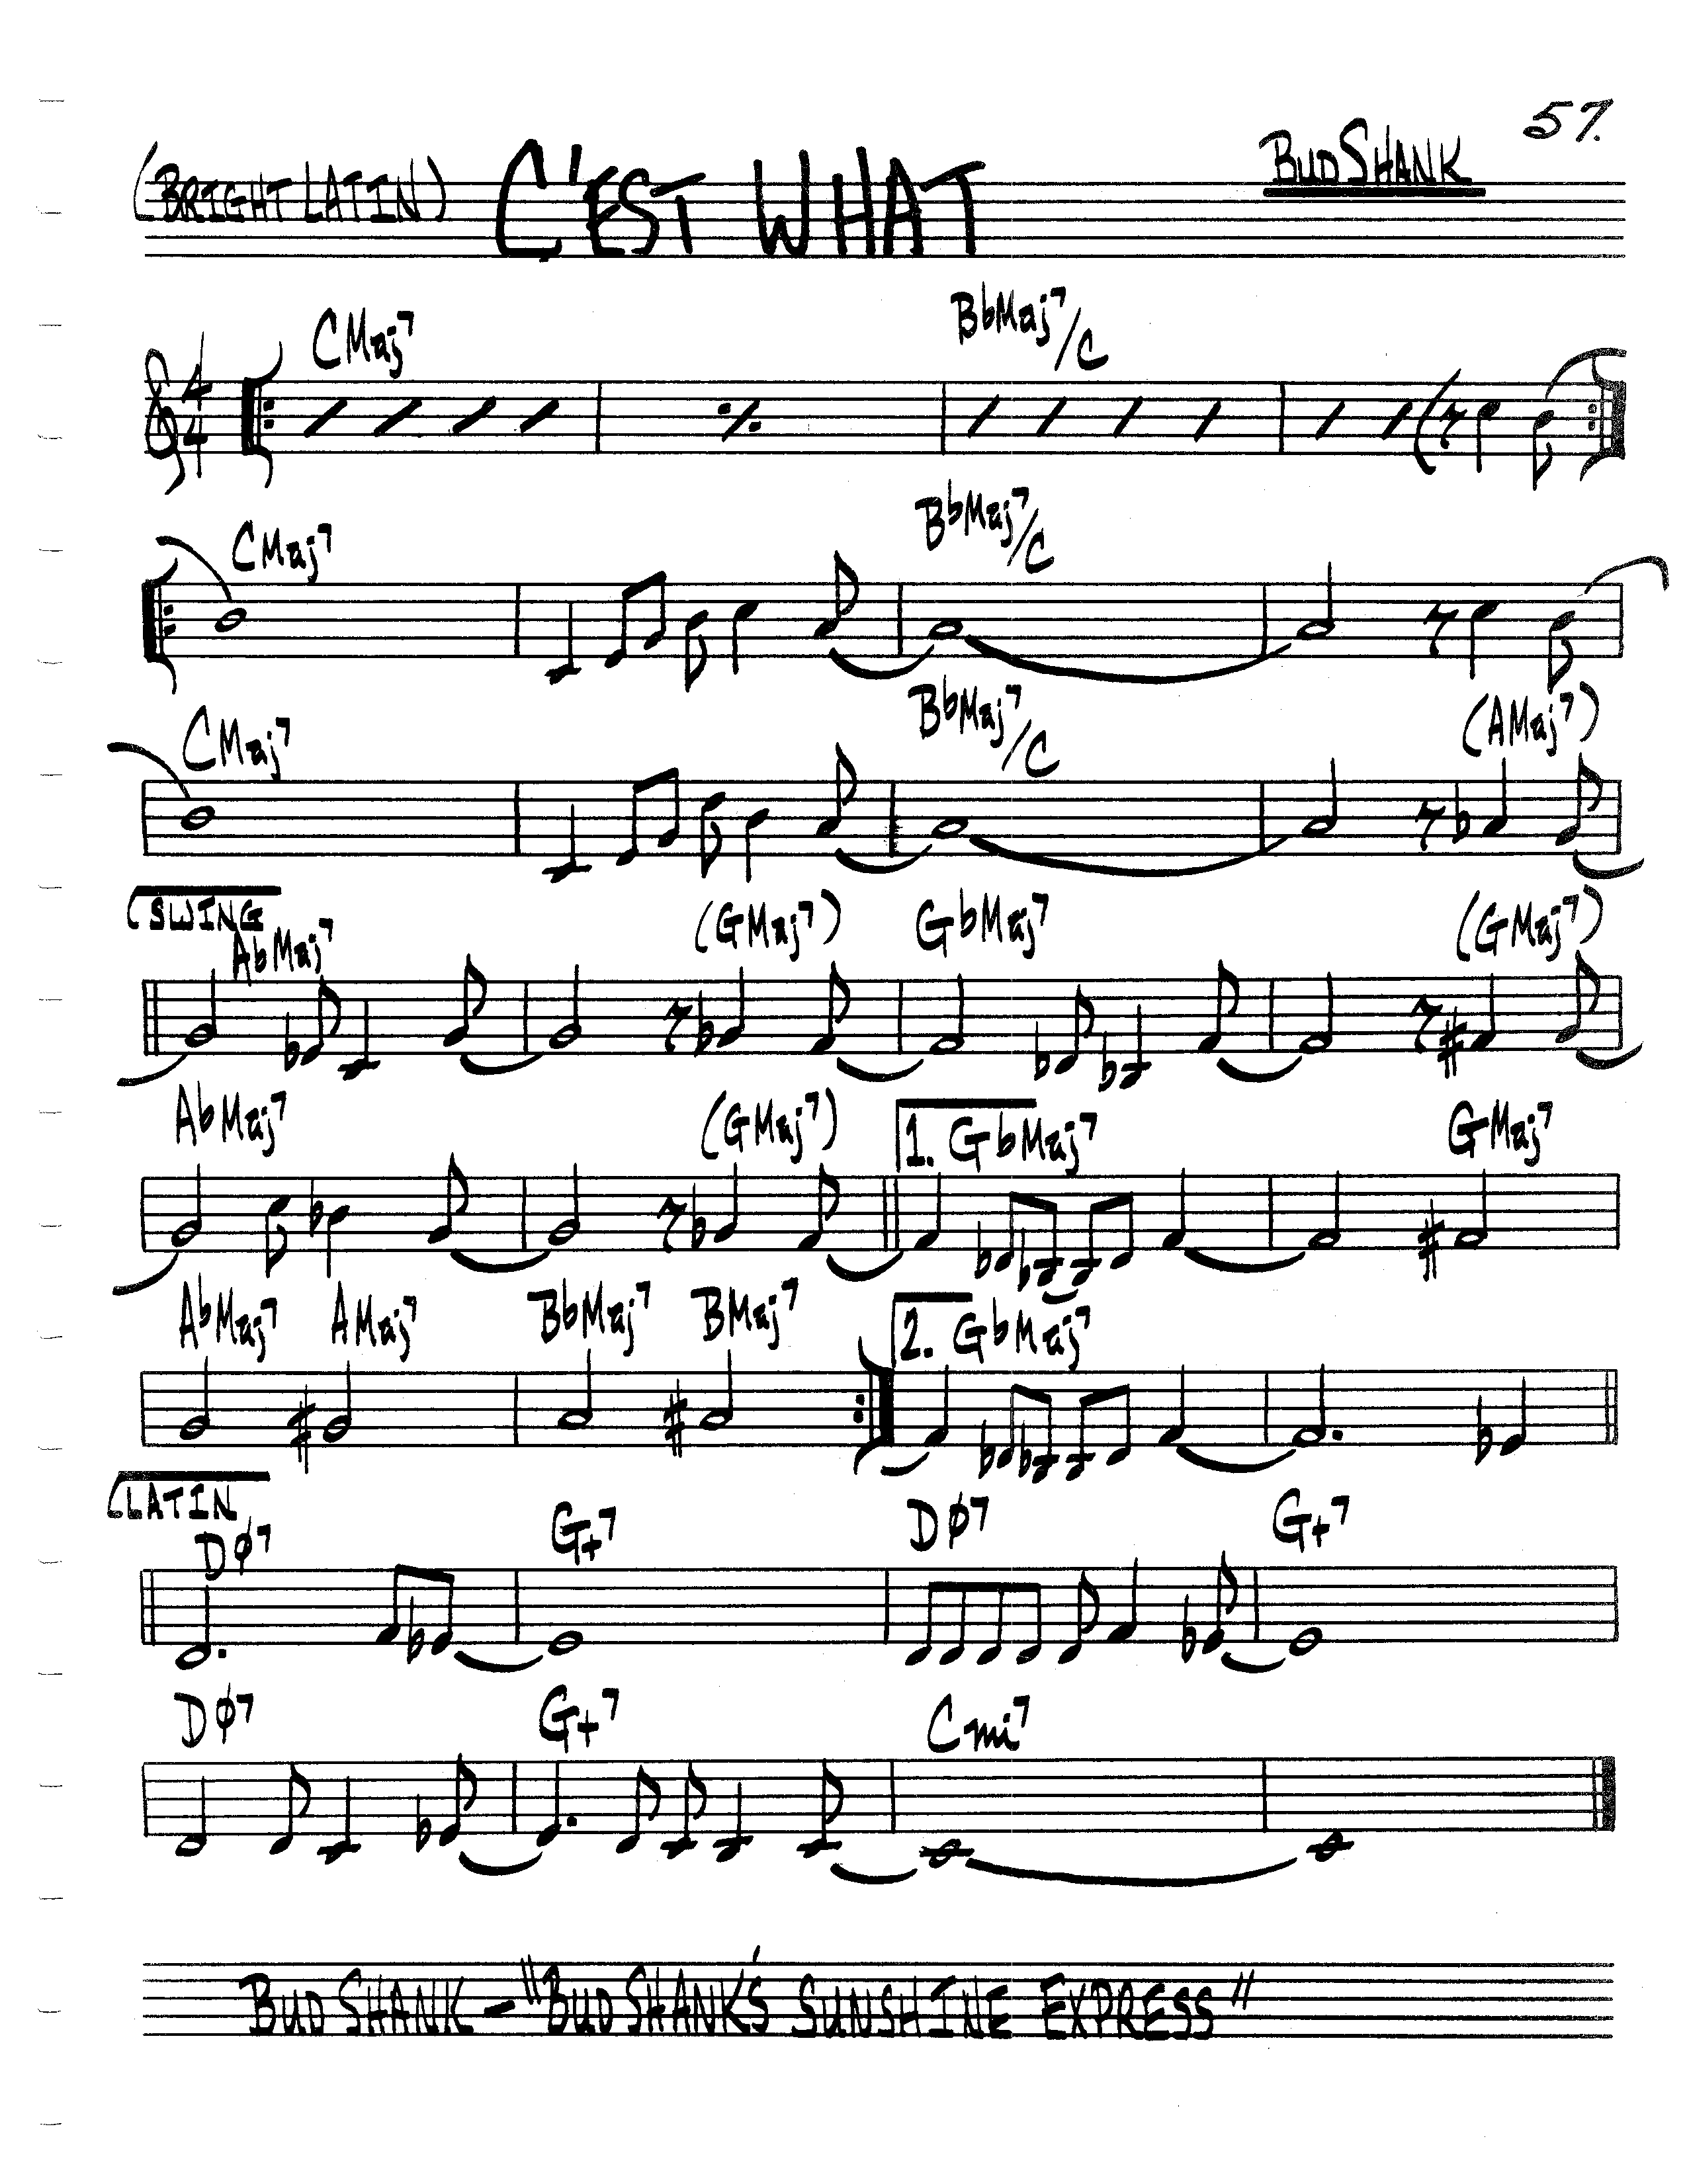 57.
(BRIGHT LATIN) C'EST WHAT BUD SHANK
CMaj7 BbMaj7/C
4
4
CMaj7 BbMaj7/C
CMaj7 BbMaj7/C (AMaj7)
SWING
AbMaj7 (GMaj7) GbMaj7 (GMaj7)
AbMaj7 (GMaj7) 1. GbMaj7 GMaj7
AbMaj7 AMaj7 BbMaj7 BMaj7 2. GbMaj7
LATIN
Dø7 G+7 Dø7 G+7
Dø7 G+7 Cmi7
BUD SHANK - "BUD SHANK'S SUNSHINE EXPRESS"